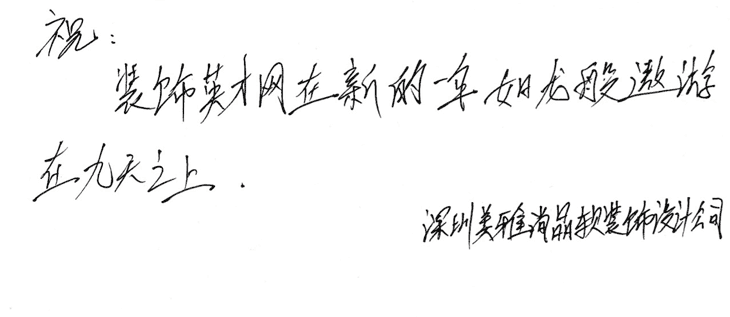 祝：
装饰英才网在新的一年如龙般遨游
在九天之上．
深圳美雅尚品软装饰设计公司